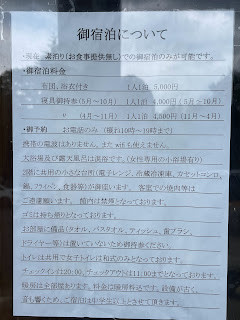 御宿泊について
・現在、素泊り(お食事提供無し)での御宿泊のみが可能です。
・御宿泊料金
布団、浴衣付き 1人1泊 5,000円
寝具御持参(5月～10月) 1人1泊 4,000円(5月～10月)
〃 (4月～11月) 1人1泊 4,500円(11月～4月)
・御予約 お電話のみ(概ね10時～19時まで)
携帯の電波はありません。また wifi も使えません。
大浴場及び露天風呂は混浴です。(女性専用の小浴場有り)
2階に共用の小さな台所(電子レンジ、冷蔵冷凍庫、カセットコンロ、
鍋、フライパン、食器等)が御座います。 客室での焼肉等は
ご遠慮願います。 館内は禁煙となっております。
ゴミは持ち帰りとなっております。
お部屋に備品(タオル、バスタオル、ティッシュ、歯ブラシ、
ドライヤー等)は置いていないため御持参ください。
トイレは共用で女子トイレは和式のみとなっております。
チェックインは20:00、チェックアウトは11:00までとなっております。
暖房は全部屋あります。料金は暖房料込です。設備が古く、
音も響くため、ご宿泊は中学生以上とさせて頂きます。